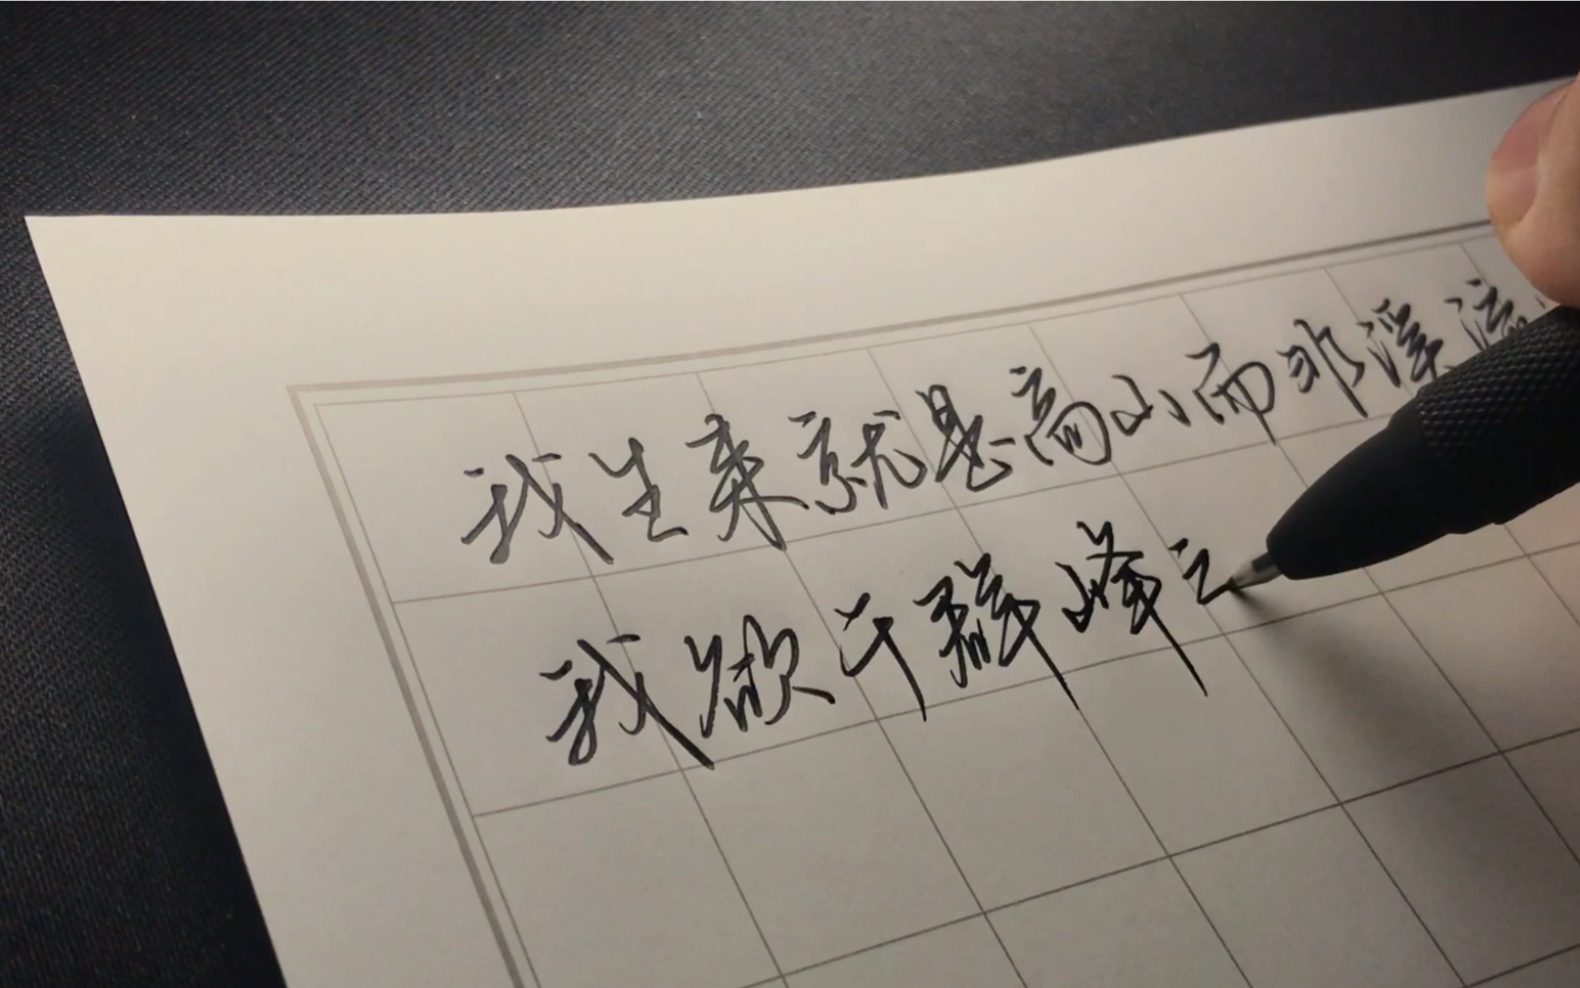 我生来就是高山而非溪流
我欲于群峰之